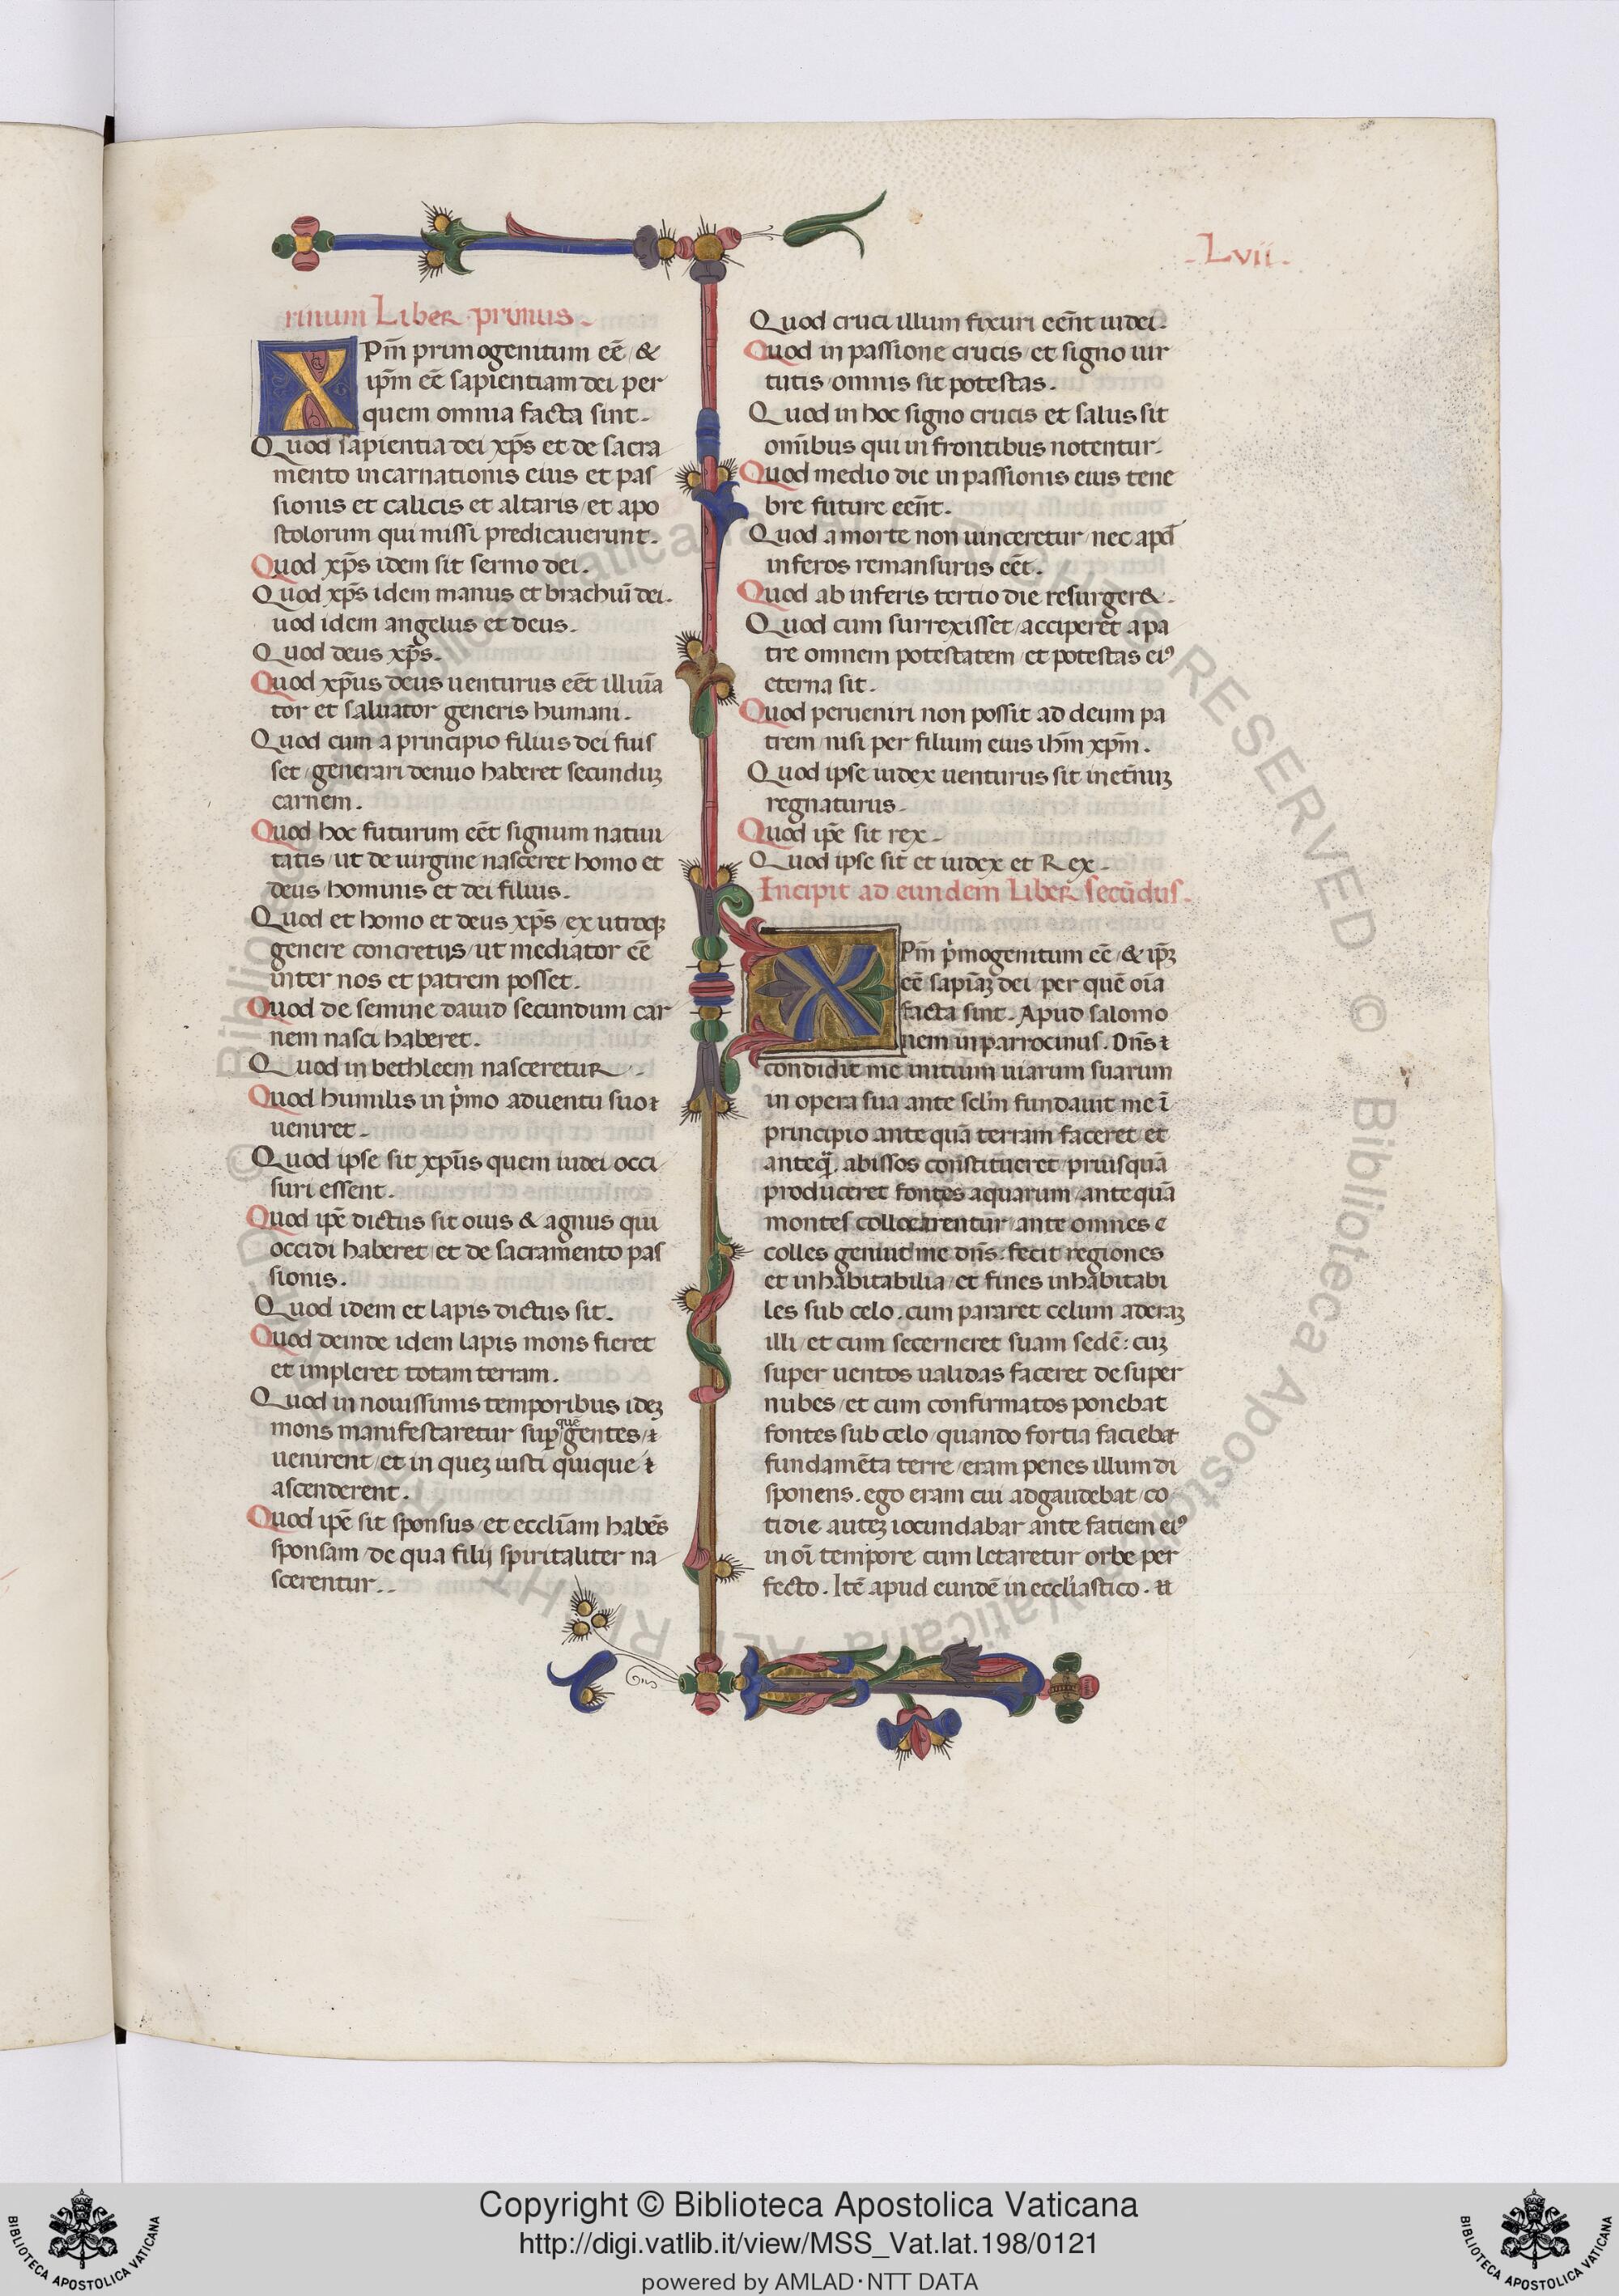 .Lvii.
rinum Liber primus.
Xp̄m primogenitum eē / &
ip̄m eē sapientiam dei per
quem omnia facta sint.
Quod sapientia dei xp̄s et de sacra
mento incarnationis eius et pas
sionis et calicis et altaris / et apo
stolorum qui missi predicauerunt.
Quod xp̄s idem sit sermo dei.
Quod xp̄s idem manus et brachiuī dei.
uod idem angelus et deus.
Quod deus xp̄s.
Quod xp̄us deus uenturus eēt illuīa
tor et saluator generis humani.
Quod cum a principio filius dei fuis
set / generari denuo haberet secunduꝫ
carnem.
Quod hoc futurum eēt signum natiui
tatis / ut de uirgine nasceret homo et
deus / hominis et dei filius.
Quod et homo et deus xp̄s / ex utroqꝫ
genere concretus / ut mediator eē
inter nos et patrem posset.
Quod de semine dauid secundum car
nem nasci haberet.
Quod in bethleem nasceretur.
Quod humilis in pͥmo aduentu suo
ueniret.
Quod ipse sit xp̄us quem iudei occi
suri essent.
Quod ip̄e dictus sit ouis & agnus qui
occidi haberet / et de sacramento pas
sionis.
Quod idem et lapis dictus sit.
Quod deinde idem lapis mons fieret
et impleret totam terram.
Quod in nouissimis temporibus ideꝫ
mons manifestaretur suꝑ quē gentes /
uenirent / et in queꝫ iusti quique
ascenderent.
Quod ip̄e sit sponsus / et eccl̄iam habēs
sponsam / de qua filij spiritaliter na
scerentur..
Quod cruci illum fixuri eēnt iudei.
Quod in passione crucis / et signo uir
tutis / omnis sit potestas.
Quod in hoc signo crucis et salus sit
om̄ibus qui in frontibus notentur.
Quod medio die in passionis eius tene
bre future eēnt.
Quod a morte non uinceretur / nec apd̄
inferos remansurus eēt.
Quod ab inferis tertio die resurger&.
Quod cum surrexisset / acciperet a pa
tre omnem potestatem / et potestas eiꝰ
eterna sit.
Quod perueniri non possit ad deum pa
trem / nisi per filium eius ih̄m xp̄m.
Quod ipse iudex uenturus sit in et̄nuꝫ
regnaturus.
Quod ip̄e sit rex.
Quod ipse sit et iudex et Rex.
Incipit ad eundem Liber secūdus.
Xp̄m pͥmogenitum eē / & ip̄ꝫ
eē sapiāꝫ dei / per quē oīa
facta sint. Apud salomo
nem in parrocinus. Dn̄s
condidit me initium uiarum suarum
in opera sua ante scl̄m fundauit me ī
principio ante quā terram faceret et
anteq̄. abissos constitueret / priusquā
produceret fontes aquarum / antequā
montes collocarentur / ante omnes e
colles genuit me dn̄s : fecit regiones
et inhabitabilia / et fines inhabitabi
les sub celo. cum pararet celum aderaꝫ
illi / et cum secerneret suam sedē : cuꝫ
super uentos ualidas faceret de super
nubes / et cum confirmatos ponebat
fontes sub celo / quando fortia faciebat
fundamēta terre / eram penes illum di
sponens. ego eram cui adgaudebat / co
tidie auteꝫ iocundabar ante fatiem eiꝰ
in oī tempore cum letaretur orbe per
fecto. Itē apud eundē in eccl̄iastico.
Copyright © Biblioteca Apostolica Vaticana
http://digi.vatlib.it/view/MSS_Vat.lat.198/0121
powered by AMLAD·NTT DATA
BIBLIOTECA APOSTOLICA VATICANA
BIBLIOTECA APOSTOLICA VATICANA